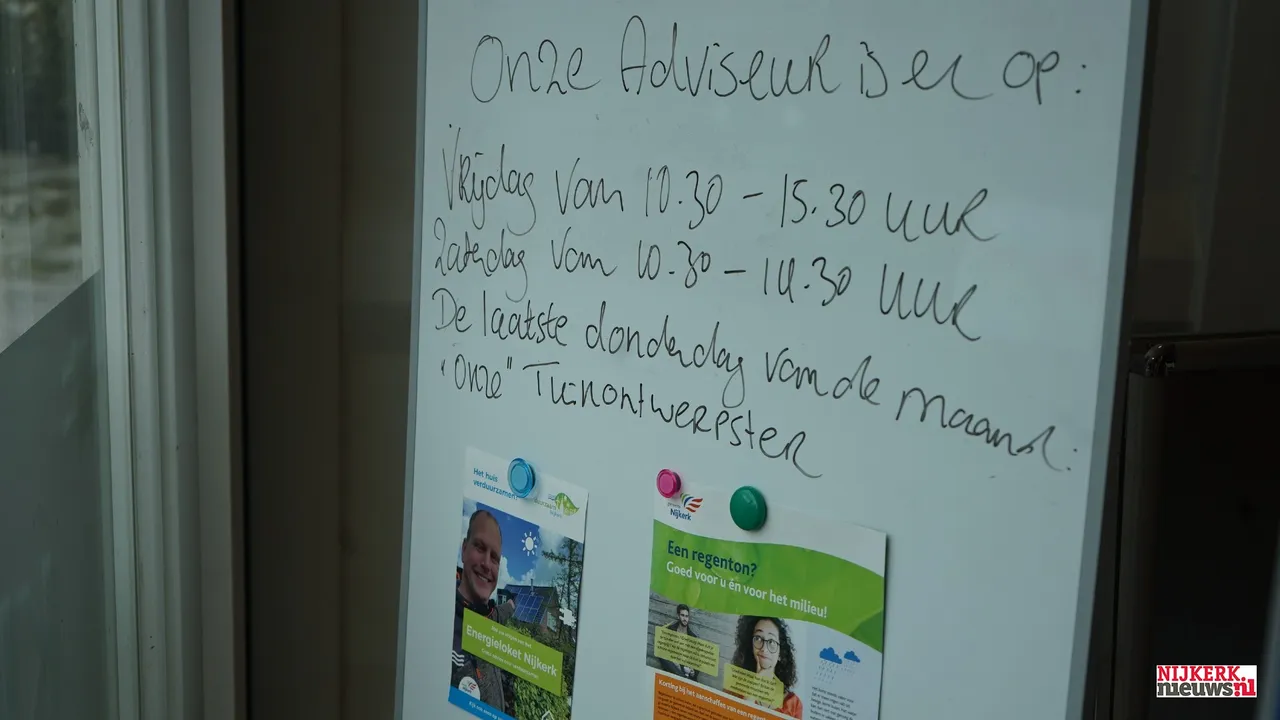 Onze Adviseur is er op:
Vrijdag van 10.30 - 15.30 uur
Zaterdag van 10.30 - 14.30 uur
De laatste donderdag van de maand:
"Onze" Tuinontwerpster
Het huis
verduurzamen
Energieloket Nijkerk
Nijkerk
Een regenton?
Goed voor u én voor het milieu!
Korting bij het aanschaffen van een regenton
NIJKERK
nieuws.nl